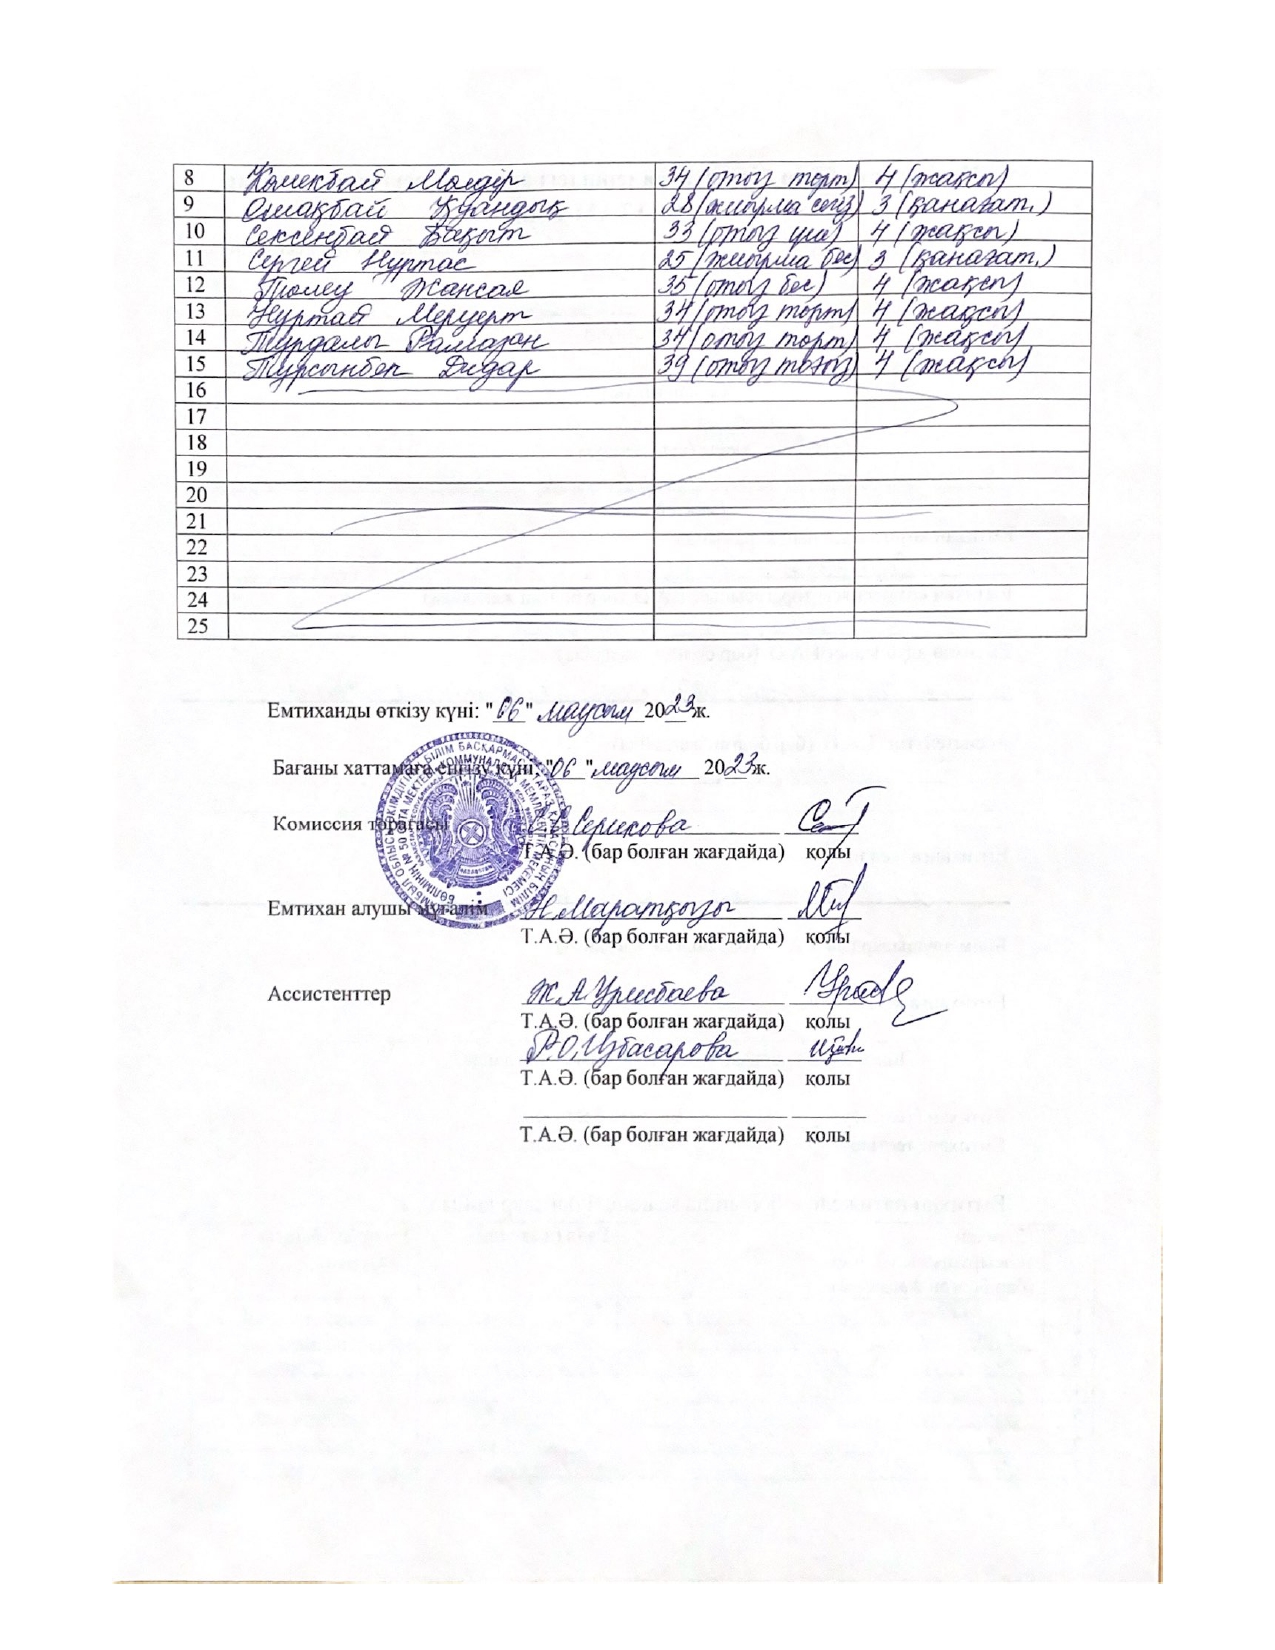 8 Көмекбай Мөлдір 34 (отыз төрт) 4 (жақсы)
9 Ошақбай Қуандық 28 (жиырма сегіз) 3 (қанағат.)
10 Сексенбай Бақыт 33 (отыз үш) 4 (жақсы)
11 Сергей Нұртас 25 (жиырма бес) 3 (қанағат.)
12 Төлеу Жансая 35 (отыз бес) 4 (жақсы)
13 Нұртай Меруерт 34 (отыз төрт) 4 (жақсы)
14 Тұрдалы Рамазан 34 (отыз төрт) 4 (жақсы)
15 Тұрсынбек Дидар 39 (отыз тоғыз) 4 (жақсы)
16
17
18
19
20
21
22
23
24
25
Емтиханды өткізу күні: "06" маусым 2023 ж.
Бағаны хаттамаға енгізу күні: "06" маусым 2023ж.
Комиссия төрағасы Серикова
Т.А.Ә. (бар болған жағдайда) қолы
Емтихан алушы мұғалім Н.Маратқызы
Т.А.Ә. (бар болған жағдайда) қолы
Ассистенттер Ж.А.Урисбаева
Т.А.Ә. (бар болған жағдайда) қолы
Р.О.Избасарова
Т.А.Ә. (бар болған жағдайда) қолы
Т.А.Ә. (бар болған жағдайда) қолы